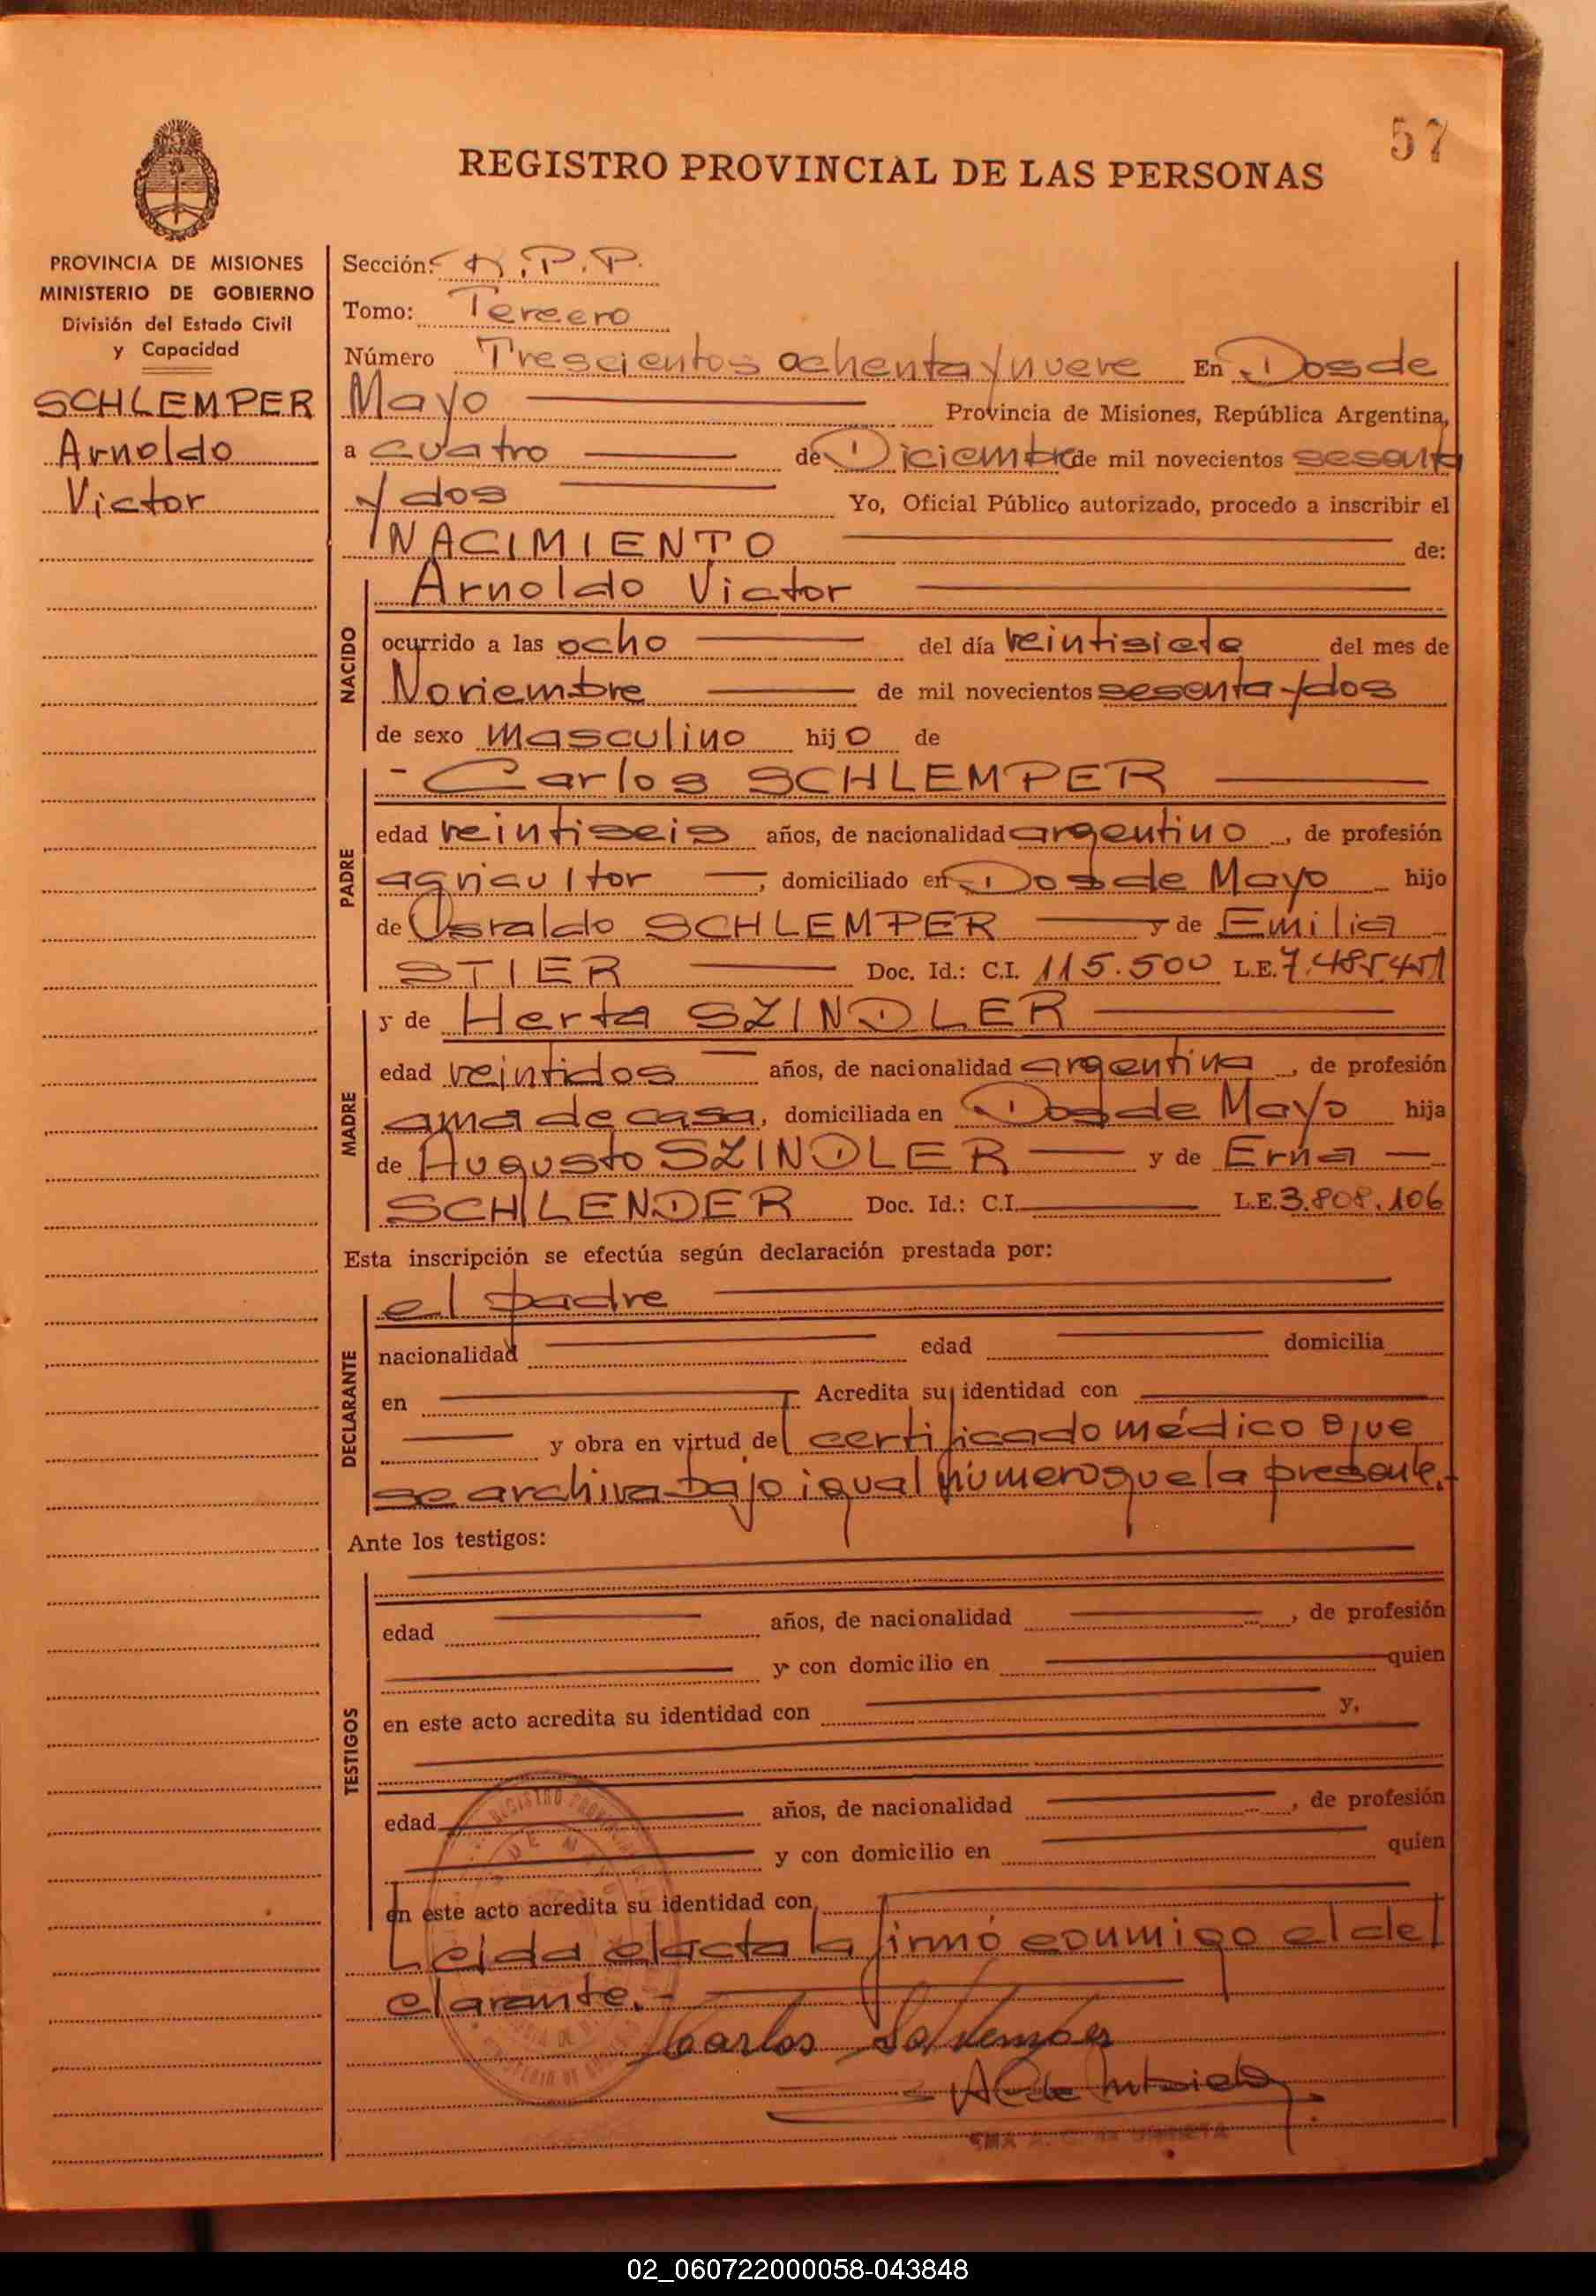 57
REGISTRO PROVINCIAL DE LAS PERSONAS
PROVINCIA DE MISIONES
MINISTERIO DE GOBIERNO
División del Estado Civil
y Capacidad
SCHLEMPER
Arnoldo
Victor
Sección: P.P.
Tomo: Tercero
Número Trescientos ochenta y nueve En Dos de
Mayo Provincia de Misiones, República Argentina,
a cuatro de Diciembre de mil novecientos sesenta
y dos Yo, Oficial Público autorizado, procedo a inscribir el
NACIMIENTO de:
NACIDO
Arnoldo Victor
ocurrido a las ocho del día veintisiete del mes de
Noviembre de mil novecientos sesenta y dos
de sexo masculino hijo de
PADRE
- Carlos SCHLEMPER
edad veintiseis años, de nacionalidad argentino, de profesión
agricultor, domiciliado en Dos de Mayo hijo
de Osvaldo SCHLEMPER y de Emilia
STIER Doc. Id.: C.I. 115.500 L.E. 7.485.451
MADRE
y de Herta SZINDLER
edad veintidos años, de nacionalidad argentina, de profesión
ama de casa, domiciliada en Dos de Mayo hija
de Augusto SZINDLER y de Erna
SCHLENDER Doc. Id.: C.I. L.E. 3.808.106
Esta inscripción se efectúa según declaración prestada por:
DECLARANTE
el padre
nacionalidad edad domicilia
en Acredita su identidad con
y obra en virtud del certificado médico que
se archiva bajo igual número que la presente.-
Ante los testigos:
TESTIGOS
edad años, de nacionalidad , de profesión
y con domicilio en quien
en este acto acredita su identidad con y,
edad años, de nacionalidad , de profesión
y con domicilio en quien
en este acto acredita su identidad con
Leida el acta la firmó conmigo el de
clarante.-
Carlos Schlemper
02_060722000058-043848